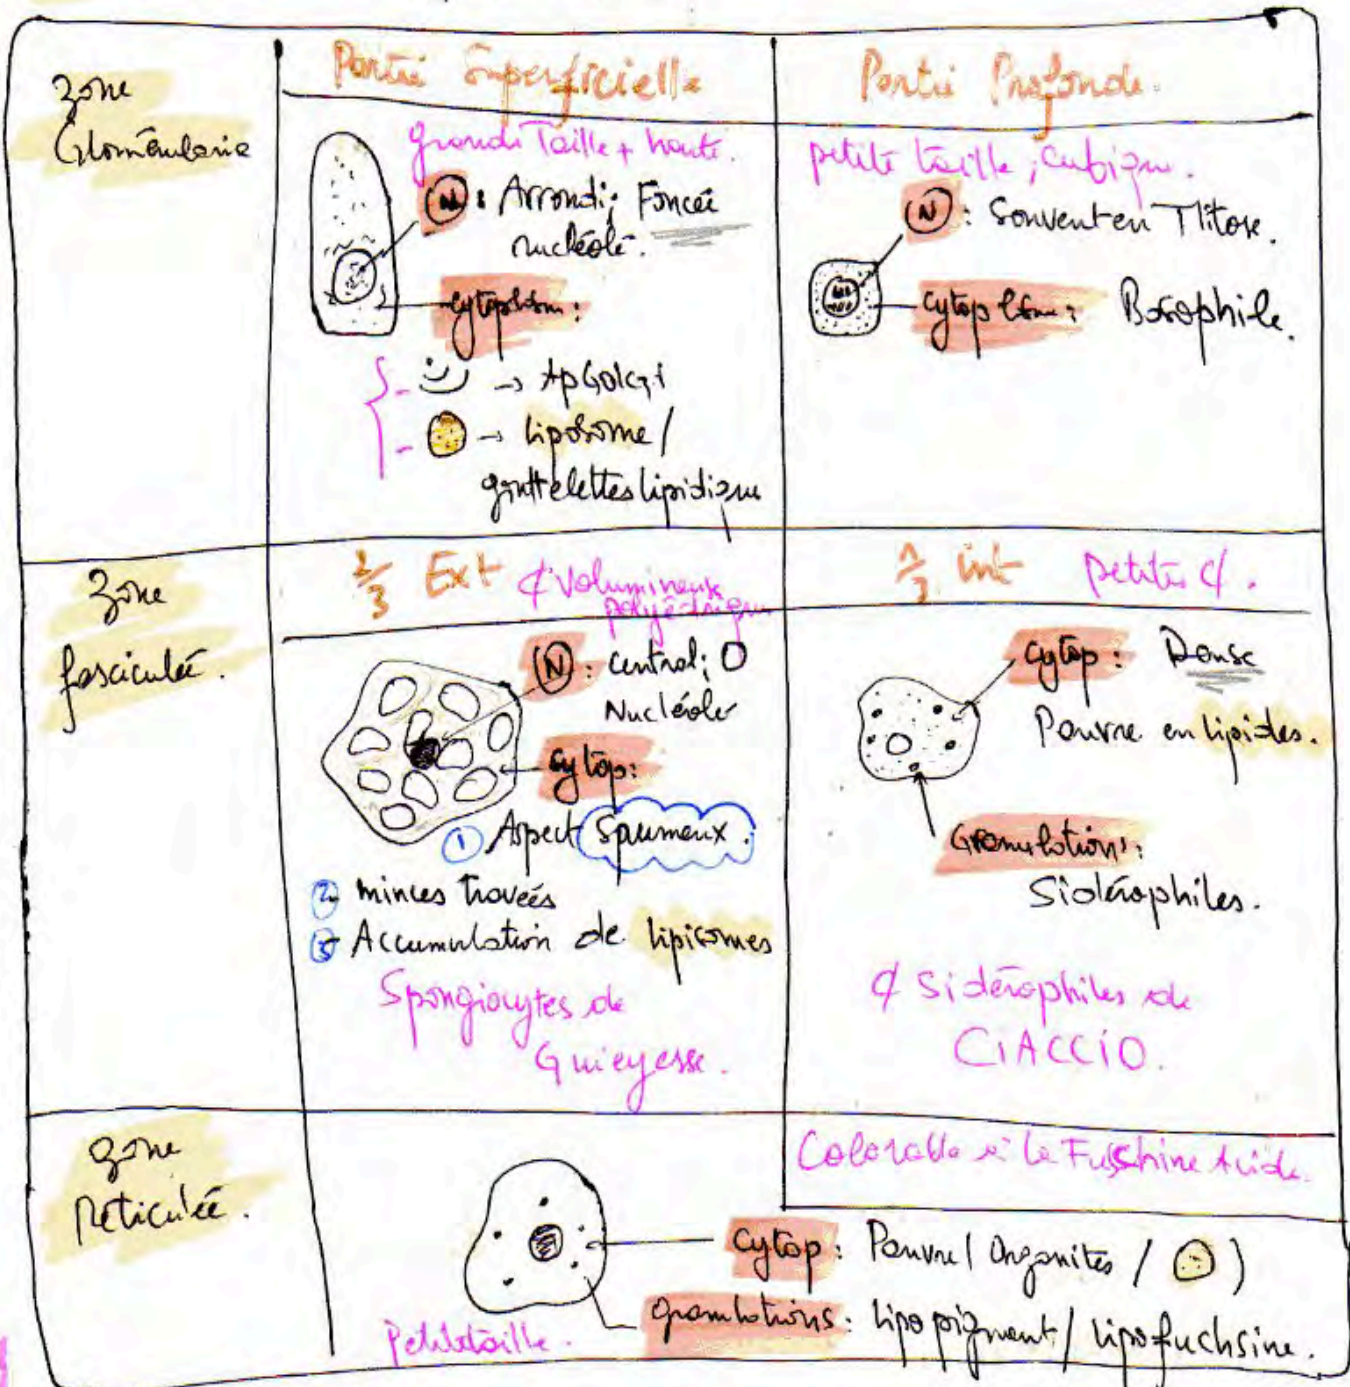 zone
Glomérulaire
Partie Superficielle
Partie Profonde.
grande Taille + haute.
N : Arrondi; Foncée
nucléolé.
cytoplasm :
- → Ap Golgi
- → liposome /
gouttelettes lipidique
petite taille, cubique.
N : Souvent en Mitose.
cytoplasm : Basophile.
zone
fasciculée.
2/3 Ext ¢ Volumineux
polyédrique
N : Central; O
Nucléole
cytop:
① Aspect Spumeux.
② minces travées
③ Accumulation de liposomes
Spongiocytes de
Guieyesse.
1/3 int petites ¢.
cytop : Dense
Pauvre en lipides.
Granulations:
Sidérophiles.
¢ Sidérophiles de
CIACCIO.
zone
réticulée.
Colorable à la Fuschine Acide.
cytop : Pauvre / Organites / )
granulations : lipopigment / lipofuchsine.
Petite taille.